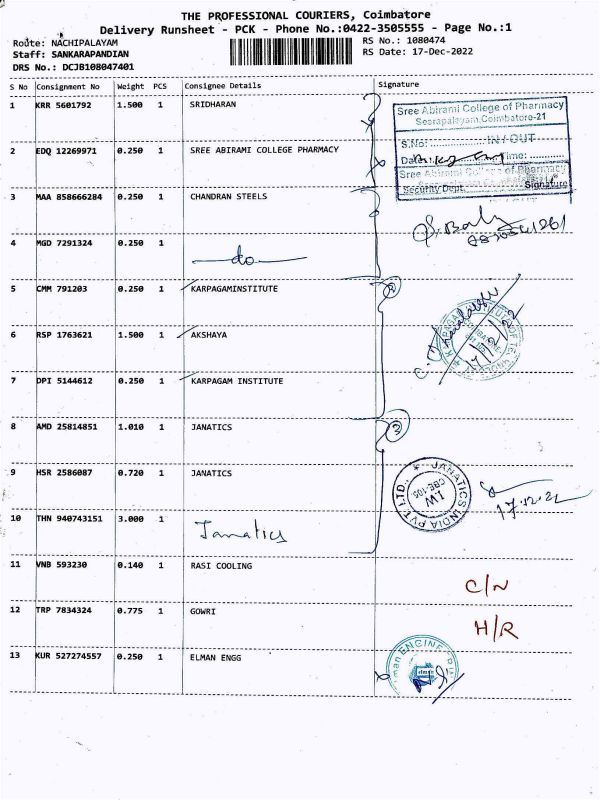 THE PROFESSIONAL COURIERS, Coimbatore
Delivery Runsheet - PCK - Phone No.:0422-3505555 - Page No.:1
Route: NACHIPALAYAM RS No.: 1080474
Staff: SANKARAPANDIAN RS Date: 17-Dec-2022
DRS No.: DCJB108047401
S No Consignment No Weight PCS Consignee Details Signature
1 KRR 5601792 1.500 1 SRIDHARAN
Sree Abirami College of Pharmacy
Seerapalayam, Coimbatore-21
S.No: IN / OUT
Time:
Sree Abirami College of Pharmacy
Security Dept. Signature
2 EDQ 12269971 0.250 1 SREE ABIRAMI COLLEGE PHARMACY
3 MAA 858666284 0.250 1 CHANDRAN STEELS
4 MGD 7291324 0.250 1 do
5 CMM 791203 0.250 1 KARPAGAMINSTITUTE 2
6 RSP 1763621 1.500 1 AKSHAYA
17/12/22
7 DPI 5144612 0.250 1 KARPAGAM INSTITUTE
8 AMD 25814851 1.010 1 JANATICS 3
9 HSR 2586087 0.720 1 JANATICS
JANATICS INDIA PVT LTD.,
IW
CBE-105
17.12.22
10 THN 940743151 3.000 1 Janatics
11 VNB 593230 0.140 1 RASI COOLING C/N
12 TRP 7834324 0.775 1 GOWRI H/R
13 KUR 527274557 0.250 1 ELMAN ENGG